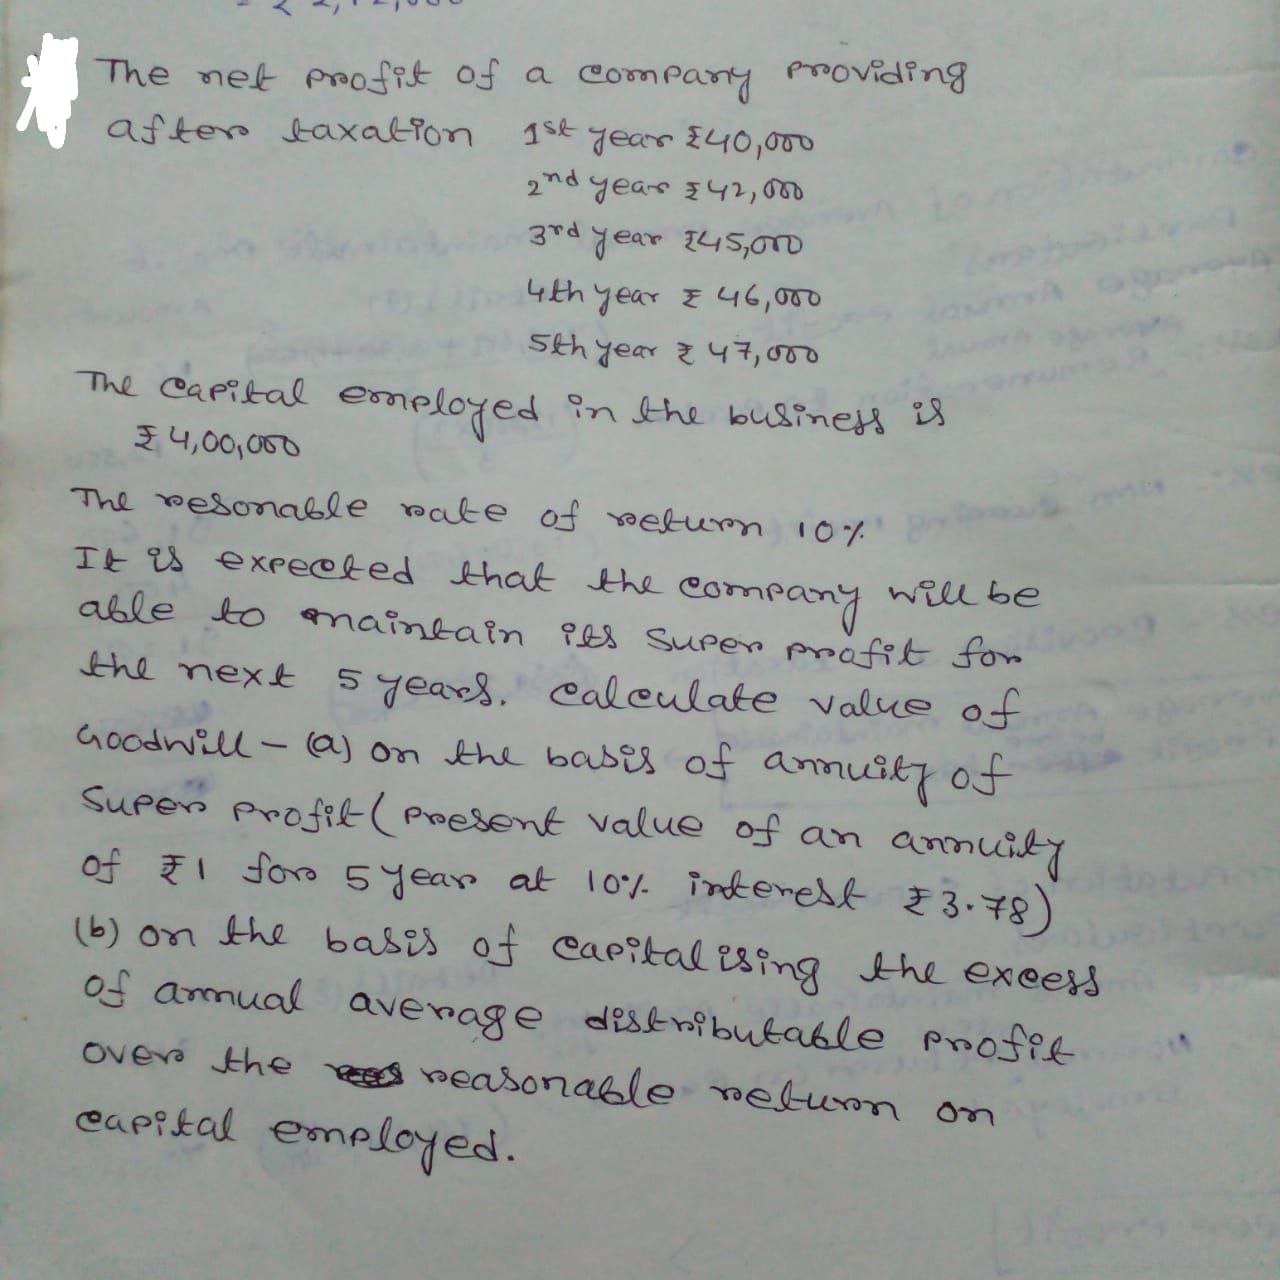 The net profit of a company providing
after taxation 1st year ₹40,000
2nd year ₹42,000
3rd year ₹45,000
4th year ₹ 46,000
5th year ₹ 47,000
The capital employed in the business is
₹4,00,000
The resonable rate of return 10%
It is expected that the company will be
able to maintain its super profit for
the next 5 years. calculate value of
Goodwill - (a) on the basis of annuity of
super profit (present value of an annuity
of ₹1 for 5 year at 10% interest ₹3.78)
(b) on the basis of capitalising the excess
of annual average distributable profit
over the reasonable return on
capital employed.